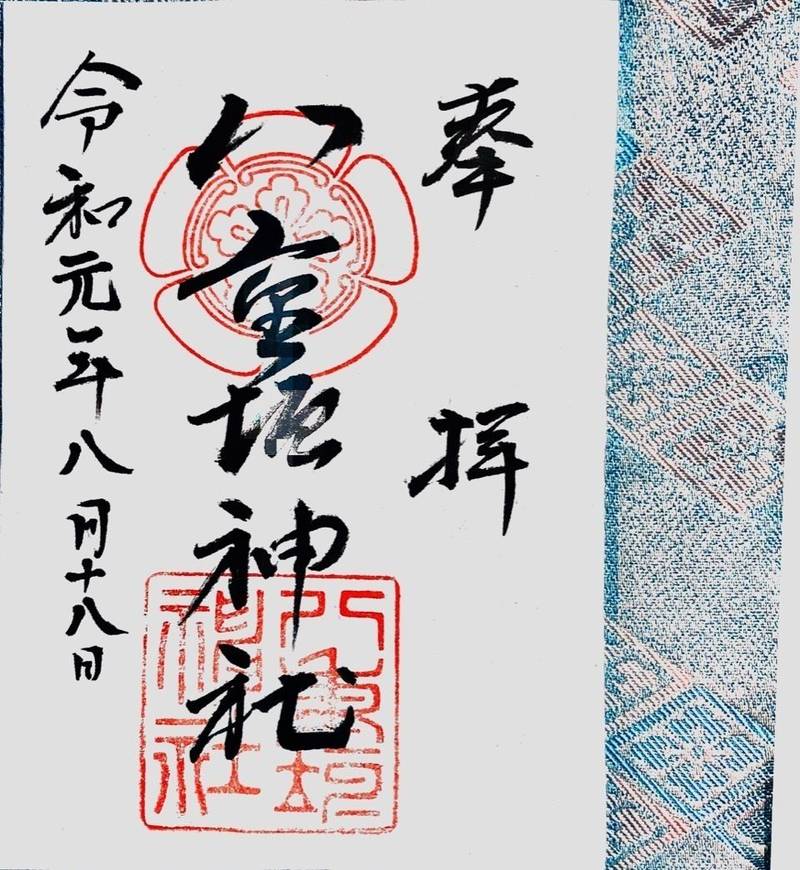 奉拝
八重垣神社
令和元年八月十八日
八重垣
神社